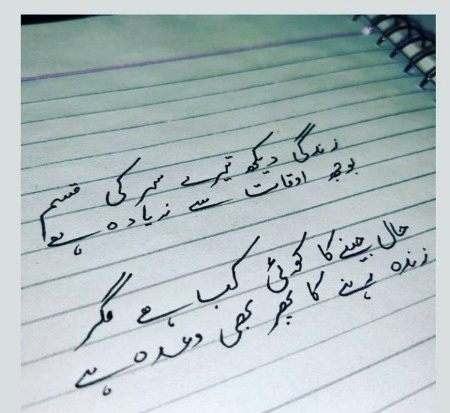 زندگی دیکھ تیرے سر کی قسم
بوجھ اوقات سے زیادہ ہے
حال جینے کا کوئی کب ہے مگر
زندہ رہنے کا پھر بھی وعدہ ہے